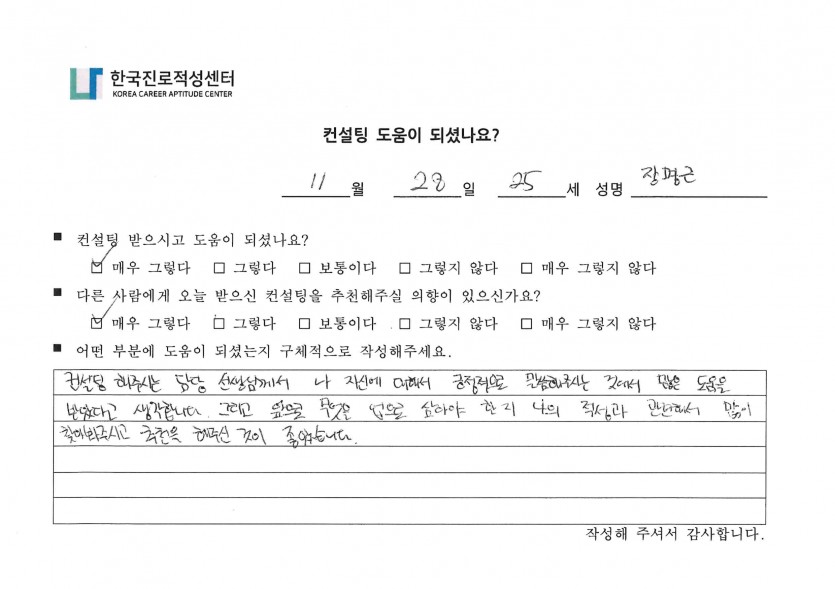 한국진로적성센터
KOREA CAREER APTITUDE CENTER
컨설팅 도움이 되셨나요?
11월 28일 25세 성명 장평근
■ 컨설팅 받으시고 도움이 되셨나요?
☑ 매우 그렇다 □ 그렇다 □ 보통이다 □ 그렇지 않다 □ 매우 그렇지 않다
■ 다른 사람에게 오늘 받으신 컨설팅을 추천해주실 의향이 있으신가요?
☑ 매우 그렇다 □ 그렇다 □ 보통이다 □ 그렇지 않다 □ 매우 그렇지 않다
■ 어떤 부분에 도움이 되셨는지 구체적으로 작성해주세요.
컨설팅 해주시는 담당 선생님께서 나 자신에 대해서 긍정적으로 말씀해주시는 것에서 많은 도움을
받았다고 생각합니다. 그리고 앞으로 무엇을 업으로 삼아야 한지 나의 적성과 관련해서 많이
찾아봐주시고 추천을 해주신 것이 좋았습니다.
작성해 주셔서 감사합니다.